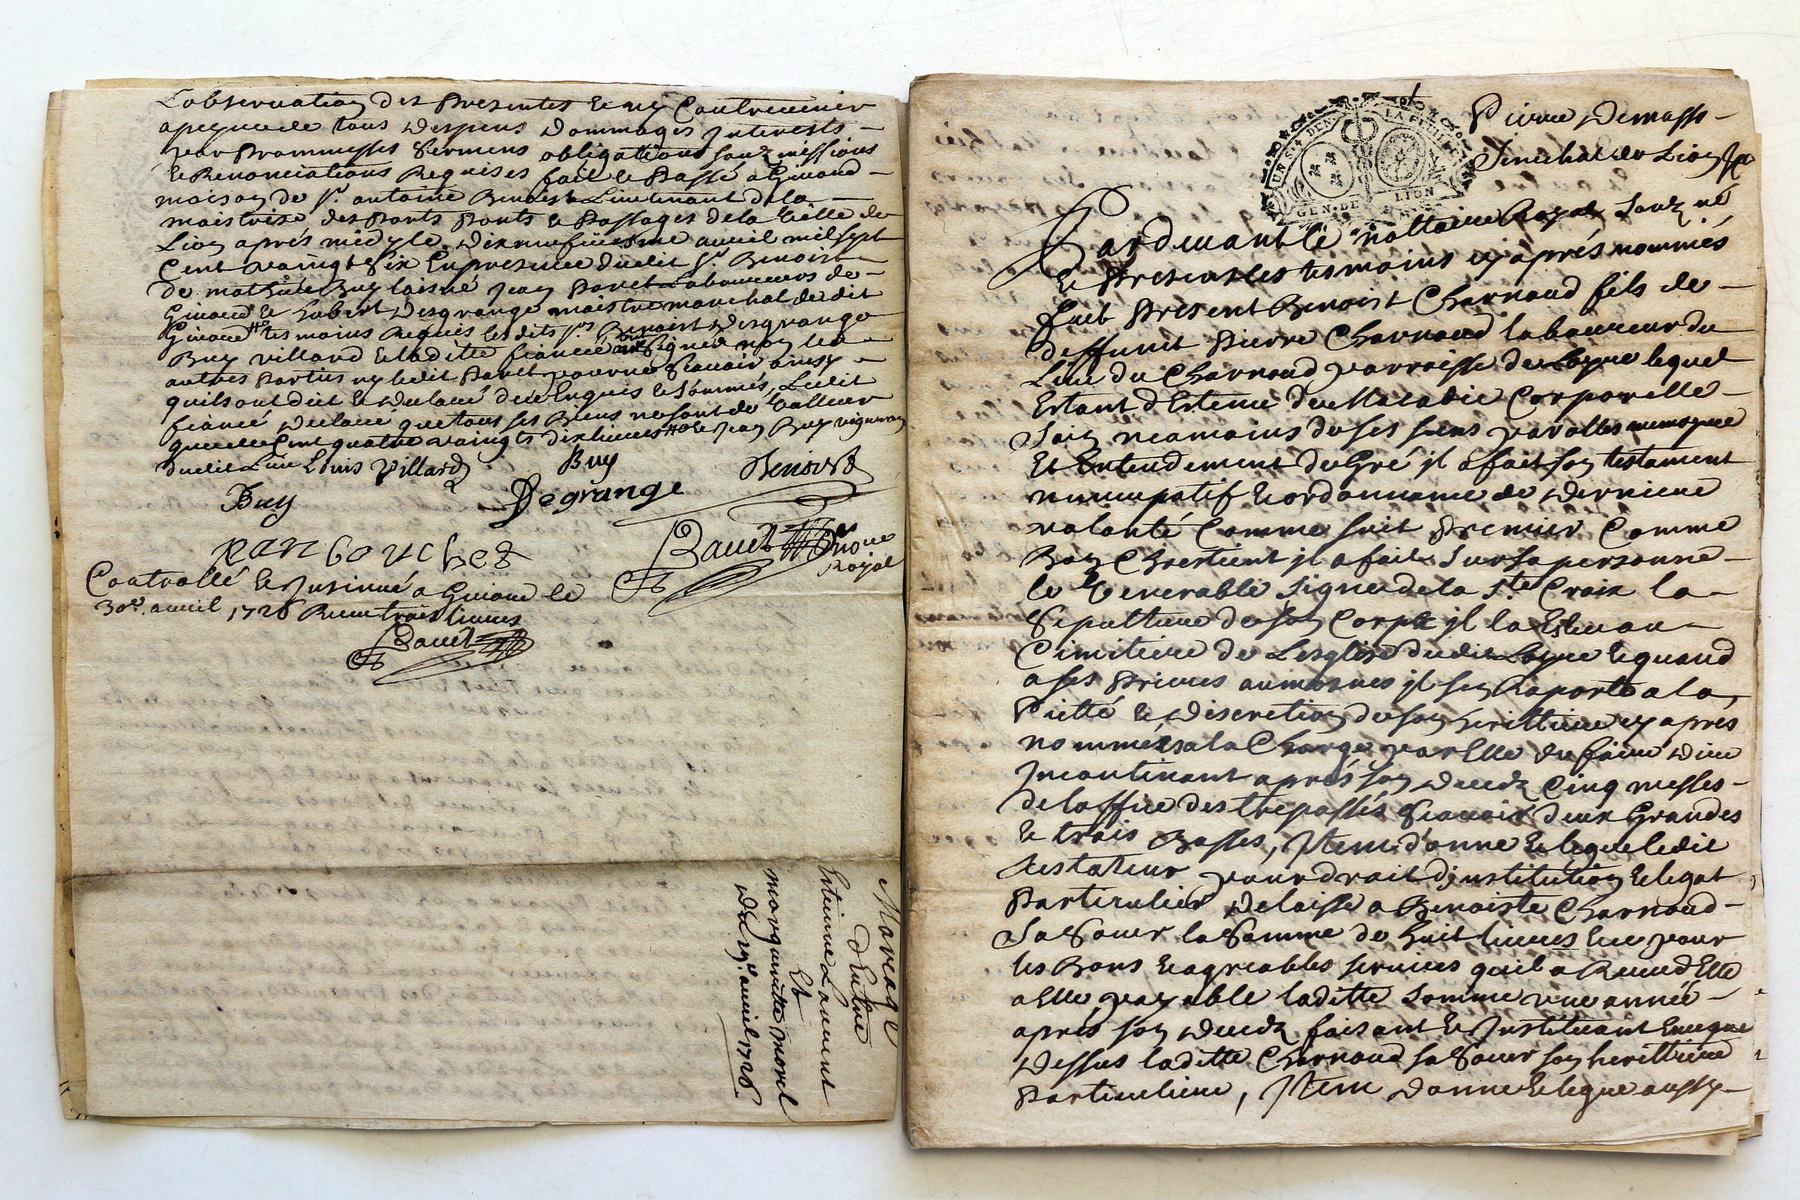 L'observation des presentes et ny Contrevenir
a peynne de tous despens dommages Interests
par Prommesses sermens obligations soubzmissions
et Renonciations Requises fait et Passé a Givord
maison de Sr. antoine Benoist Lieutenant de la
maistrise des Ports Ponts et Passages de la Ville de
Lion aprés midy le dixneufviesme avril mil sept
Cent vaingt six En presence dudit Sr. Benoist
de mathieu Buy laisné Jean Paret Laboureurs de
Givord et hubert Desgrange maistre marechal dudit
Givord tesmoins Requis lesdits Srs. Benoist Desgrange
Buy villard et ladite fiancée ont signé non les
autres Parties ny ledit Paret pour ne sçavoir ainsy
quils ont dit et declaré de ce Enquis et sommés, Ledit
fiancé declaré que tous ses Biens ne sont de Valleur
que de Cent quatre vaingts dix livres et Jean Buy vigneron
dudit Lieu Louis Villard Buy Benoist
Buy Degrange
jean bouchet Baudt nore Royal
Controllé et Insinué a Givord le
30e. avril 1726 Receu trois livres
Baudt
Mariage
d'Entre
Estienne Laurent
Et
marguerite morel
Du 19e. avril 1726.
GEN. DE LION
LA FEUILLE
Pierre Demasso
Senechal de Lion
Pardevant le nottaire Royal soubz né
Et Presents les tesmoins cy aprés nommés
fust Present Benoist Charnaud fils de
deffunt Pierre Charnaud laboureur du
Lieu du Charnaud parroisse de Loyre lequel
Estant détenu de Maladie Corporelle
Sain neamoins de ses sens parolles memoyre
Et Entendement de Gré jl a fait son testament
nuncupatif et ordonnance de derniere
volonté Comme suit Premier Comme
Bon Chrestient jl a fait Sur sa personne
le Venerable Signe de la Ste Croix la
Sepulture de son Corps jl la Esleu au
Cimitiere de Lesglise dudit Loyre et quand
a ses Prieres aumosnes jl sen Raporte a la
Pietté et discretion de son herittiere cy aprés
nommée a la Charge par Elle de faire dire
Incontinant aprés son decedz Cinq messes
de loffice des trepassés sçavoir deux Grandes
et trois Basses, Item donne et legue ledit
testateur pour droit d'institution et legat
Particulier delaisse a Benoiste Charnaud
Sa Sœur la Somme de huit livres Et ce pour
les Bons et agreables services quil a Receu d'Elle
a Elle payable ladite somme une année
aprés son decedz faisant et Instituant En ce que
dessus ladite Charnaud sa Sœur son herittiere
Particuliere, Item donne et legue aussy